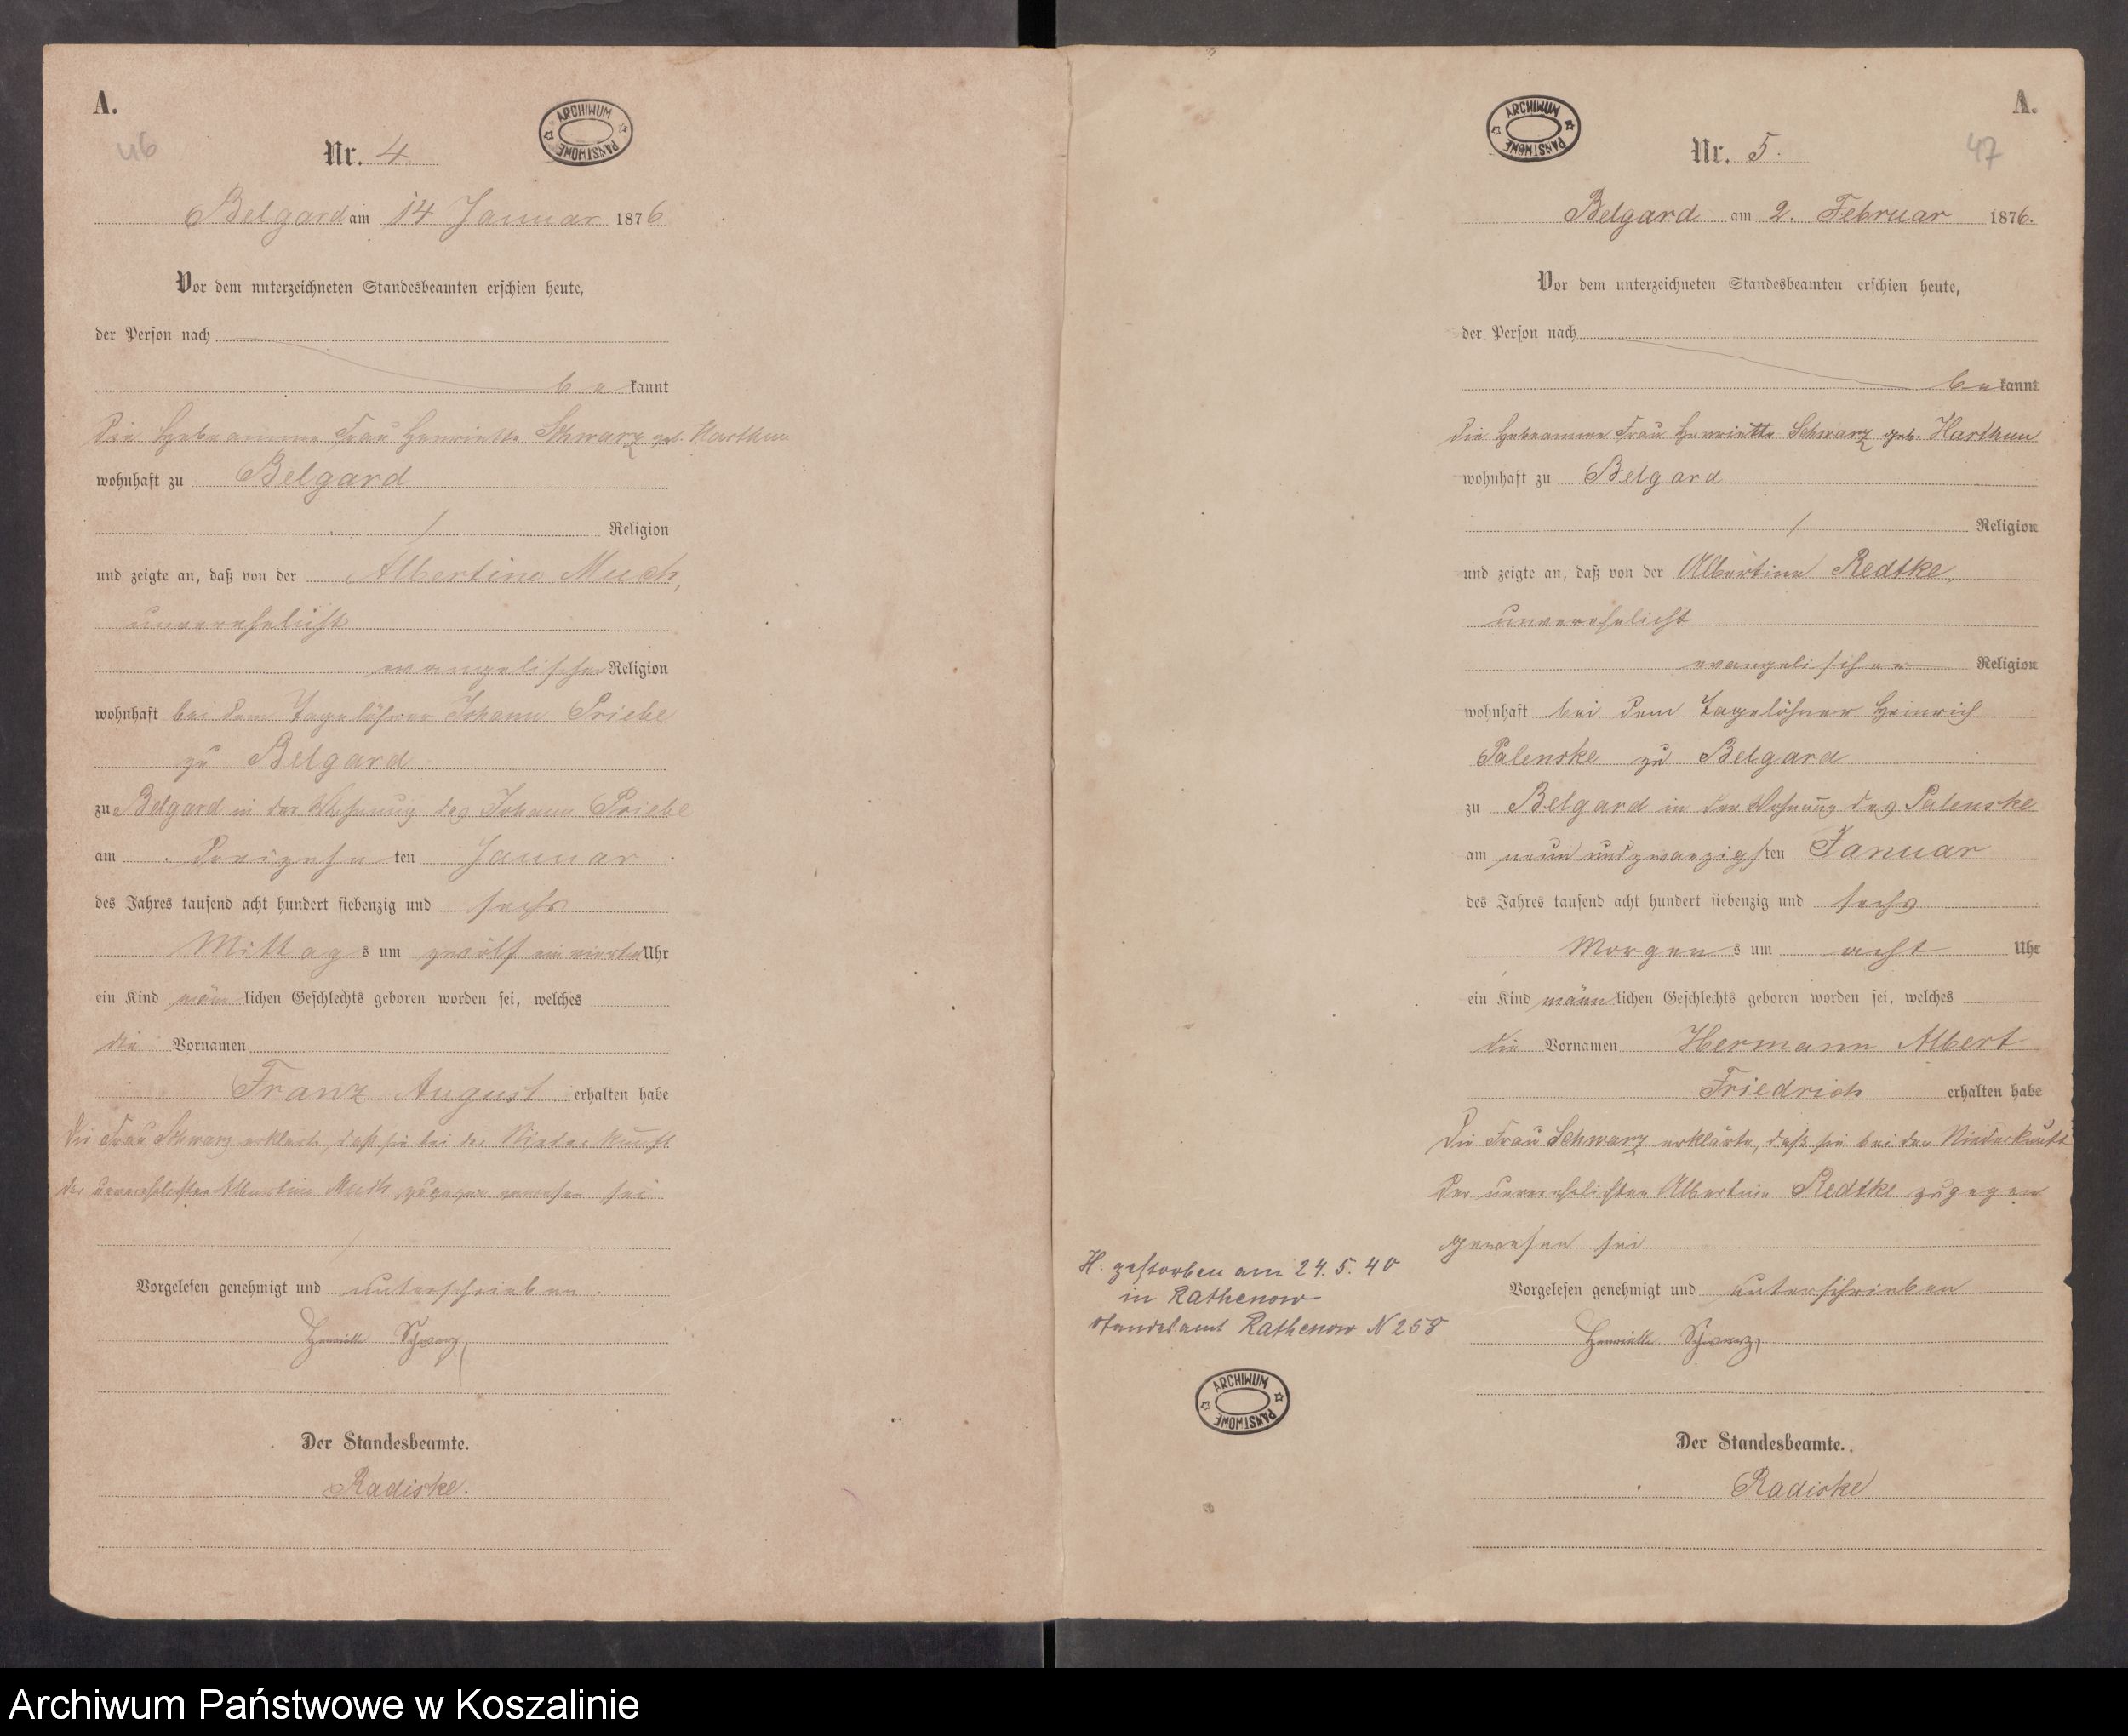 A.
46
Nr. 4
ARCHIWUM PAŃSTWOWE
Belgard am 14 Januar 1876
Vor dem unterzeichneten Standesbeamten erschien heute,
der Person nach
be kannt
die Hebeamme Frau Henriette Schwarz geb. Harthun
wohnhaft zu Belgard
/ Religion
und zeigte an, daß von der Albertine Much,
unverehelicht
evangelischer Religion
wohnhaft bei dem Tagelöhner Johann Priebe
zu Belgard
zu Belgard in der Wohnung des Johann Priebe
am dreizehn ten Januar
des Jahres tausend acht hundert siebenzig und sechs
Mittag s um zwölf ein viertel Uhr
ein Kind männ lichen Geschlechts geboren worden sei, welches
die Vornamen
Franz August erhalten habe
Die Frau Schwarz erklärte, daß sie bei der Niederkunft
der unverehelichten Albertine Much zugegen gewesen sei
Vorgelesen genehmigt und unterschrieben.
Henriette Schwarz
Der Standesbeamte.
Radiske.
A.
47
ARCHIWUM PAŃSTWOWE
Nr. 5.
Belgard am 2. Februar 1876.
Vor dem unterzeichneten Standesbeamten erschien heute,
der Person nach
be kannt
die Hebeamme Frau Henriette Schwarz geb. Harthun
wohnhaft zu Belgard
/ Religion
und zeigte an, daß von der Albertine Redtke,
unverehelicht
evangelischer Religion
wohnhaft bei dem Tagelöhner Heinrich
Palenske zu Belgard
zu Belgard in der Wohnung des Palenske
am neun und zwanzigs ten Januar
des Jahres tausend acht hundert siebenzig und sechs
Morgen s um acht Uhr
ein Kind männ lichen Geschlechts geboren worden sei, welches
die Vornamen Hermann Albert
Friedrich erhalten habe
Die Frau Schwarz erklärte, daß sie bei der Niederkunft
der unverehelichten Albertine Redtke zugegen
gewesen sei
Vorgelesen genehmigt und unterschrieben
Henriette Schwarz
Der Standesbeamte.
Radiske
H. gestorben am 24. 5. 40
in Rathenow
Standesamt Rathenow N 258
ARCHIWUM PAŃSTWOWE
Archiwum Państwowe w Koszalinie